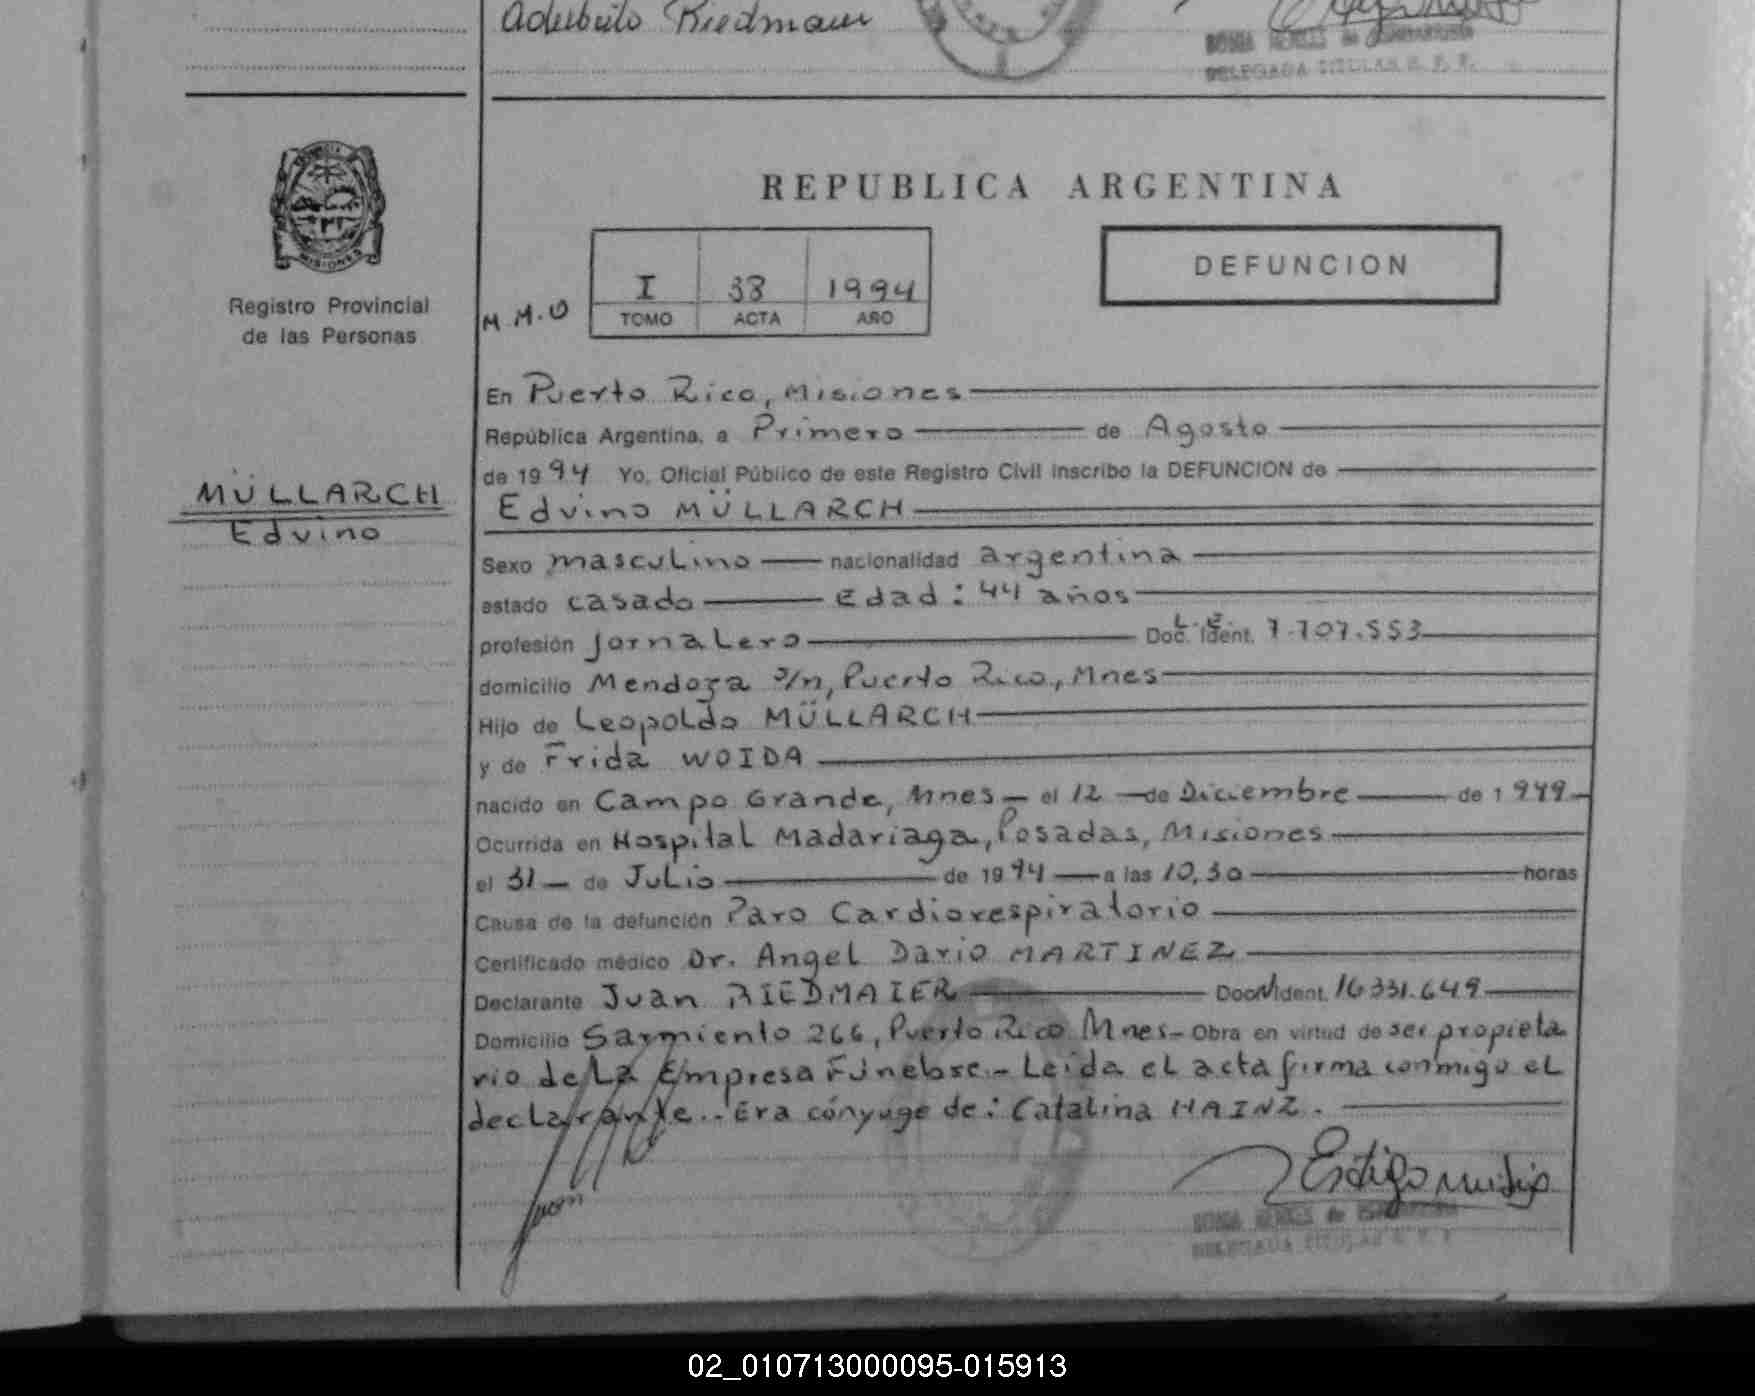 Riedmaier
DELEGADA TITULAR R. P. P.
PROVINCIA DE
MISIONES
Registro Provincial
de las Personas
MÜLLARCH
Edvino
REPUBLICA ARGENTINA
DEFUNCION
M.M.O
I 38 1994
TOMO ACTA AÑO
En Puerto Rico, Misiones
República Argentina, a Primero de Agosto
de 1994 Yo, Oficial Público de este Registro Civil inscribo la DEFUNCION de
Edvino MÜLLARCH
Sexo masculino nacionalidad argentina
estado casado Edad: 44 años
profesión jornalero Doc. Ident. L.E. 7.707.553
domicilio Mendoza s/n, Puerto Rico, Mnes
Hijo de Leopoldo MÜLLARCH
y de Frida WOIDA
nacido en Campo Grande, Mnes - el 12 de Diciembre de 1949
Ocurrida en Hospital Madariaga, Posadas, Misiones
el 31 de Julio de 1994 a las 10,30 horas
Causa de la defunción Paro Cardiorespiratorio
Certificado médico Dr. Angel Dario MARTINEZ
Declarante Juan RIEDMAIER Doc. Ident. 16.331.649
Domicilio Sarmiento 266, Puerto Rico Mnes - Obra en virtud de ser propieta
rio de La Empresa Fúnebre.- Leida el acta firma conmigo el
declarante.- Era cónyuge de: Catalina HAINZ.
DELEGADA TITULAR R. P. P.
02_010713000095-015913